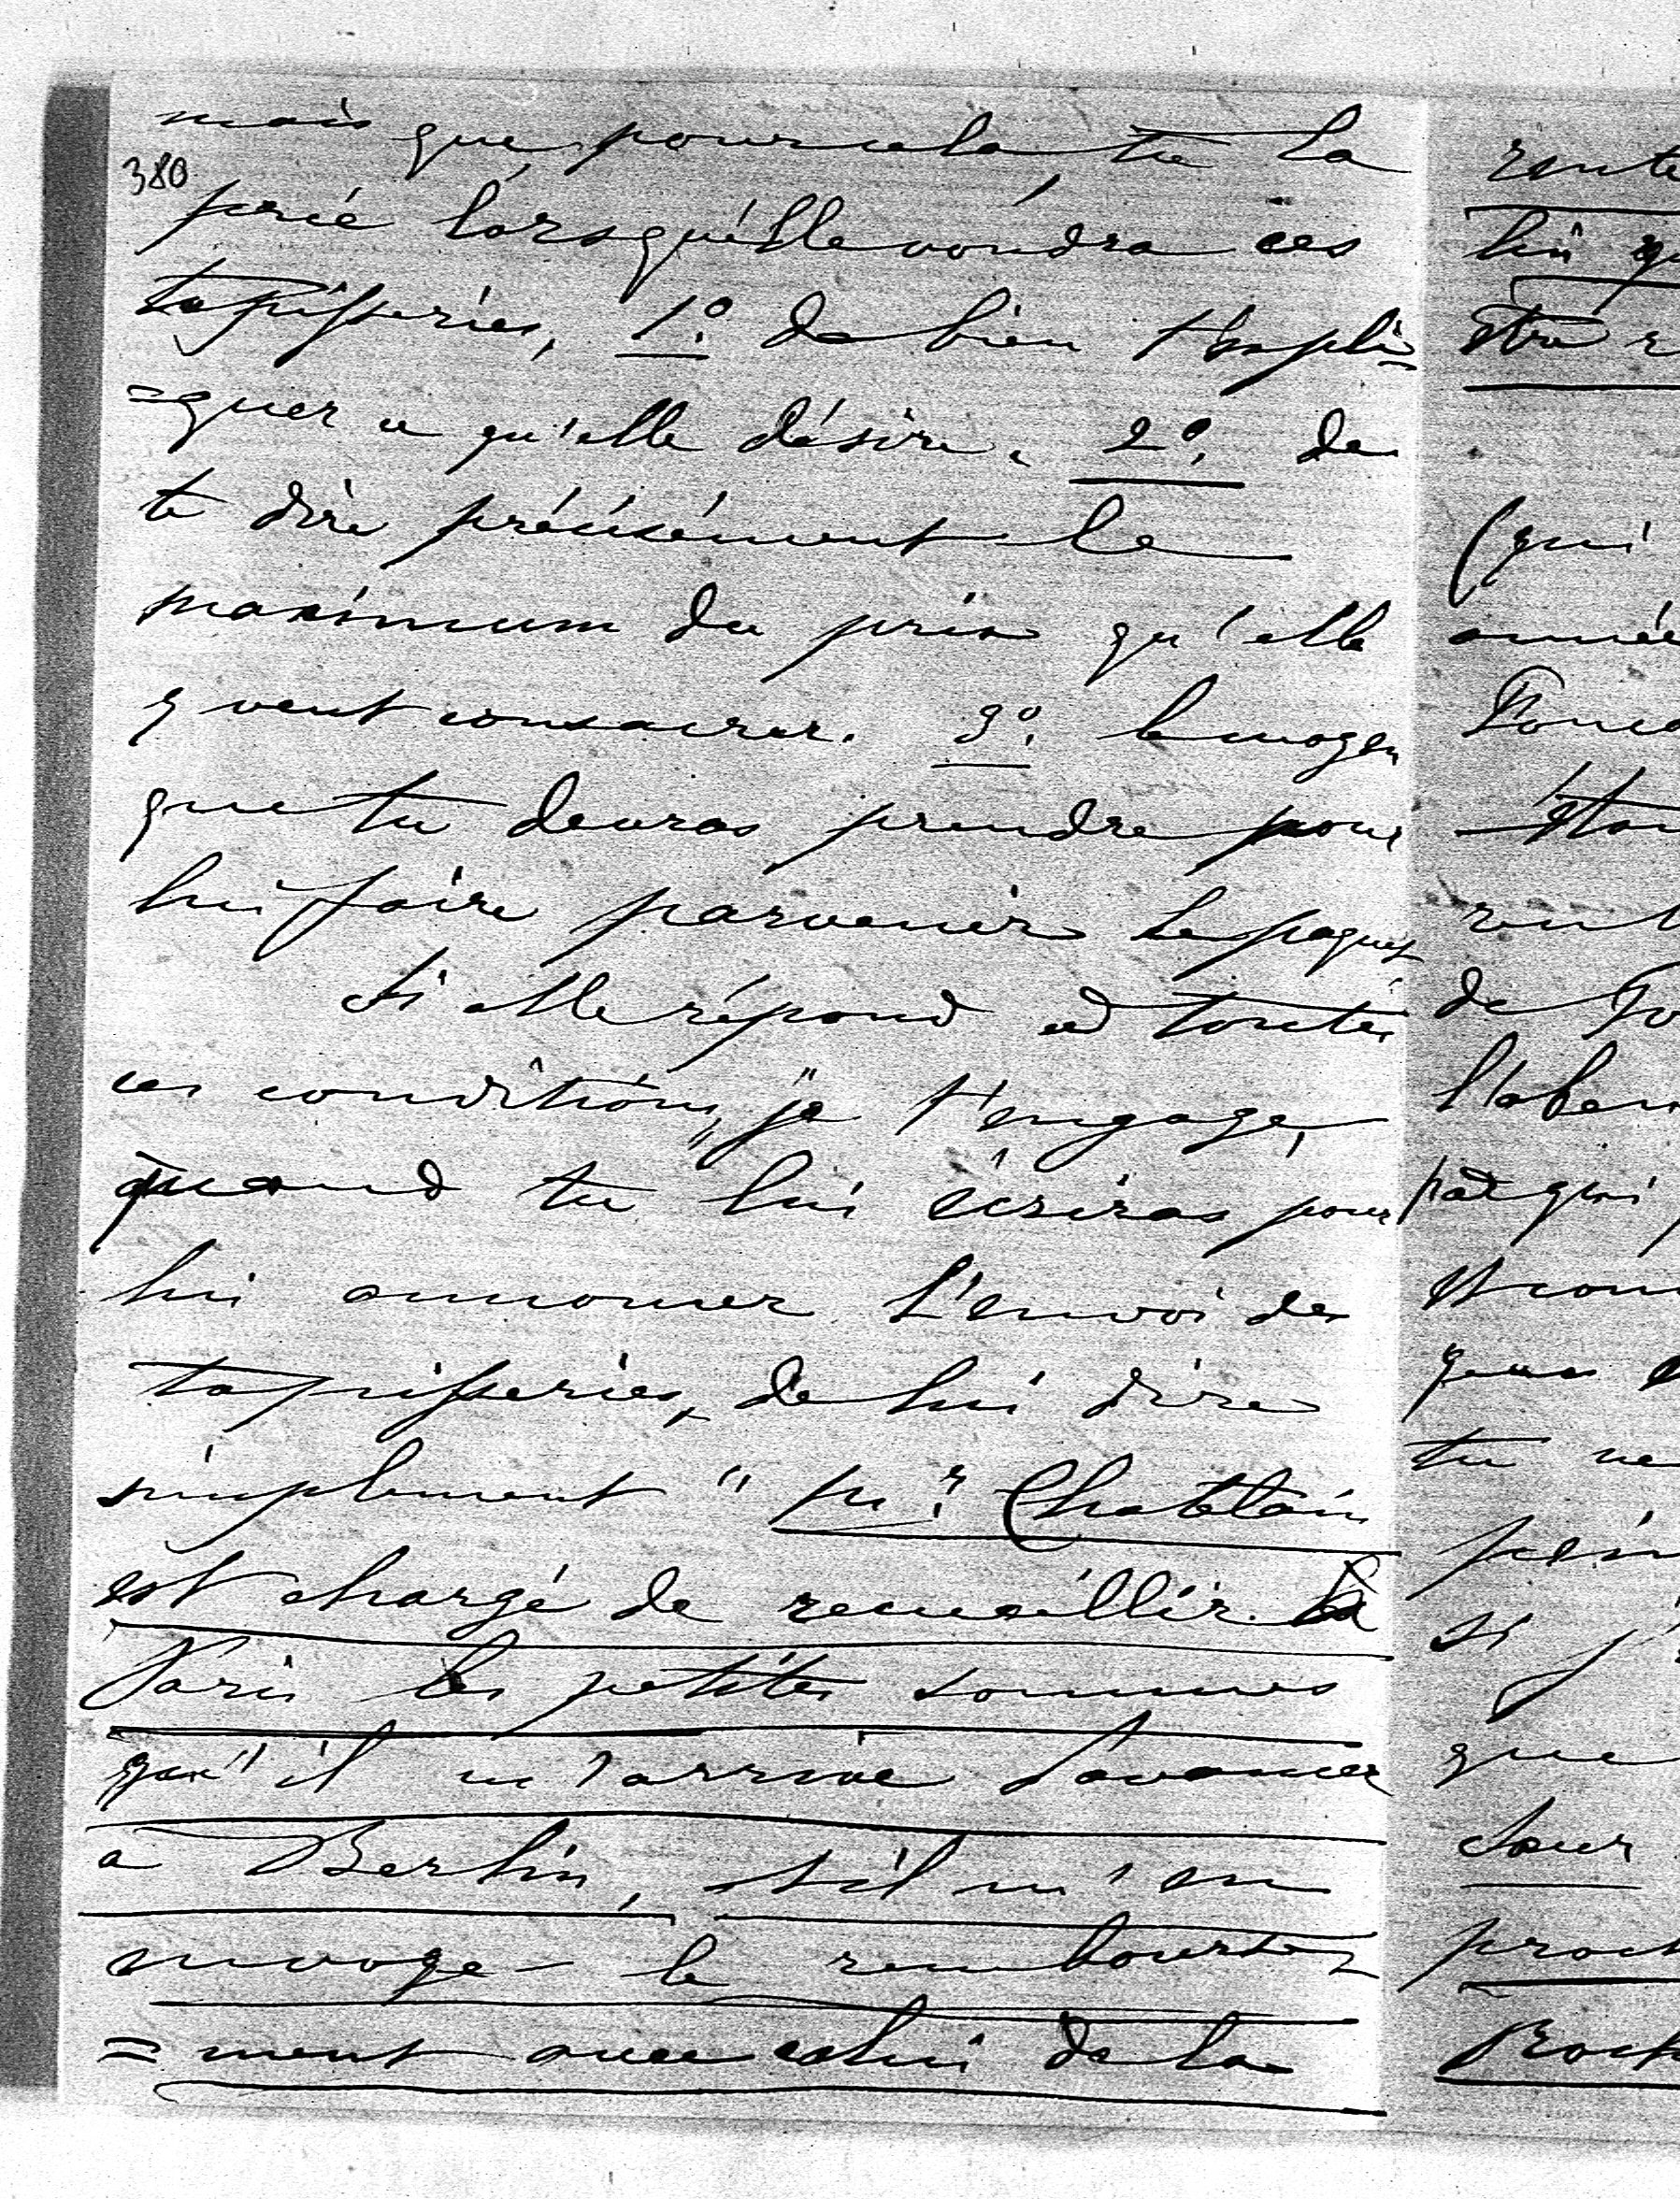 mais que, pour cela, tu la
380
prie lorsqu'elle voudra ces
tapisseries, 1º. de bien t'expli=
=quer ce qu'elle désire, 2º. de
te dire précisément le
maximum du prix qu'elle
y veut consacrer. 3º. le moyen
que tu devras prendre pour
lui faire parvenir le paquet
Si elle répond à toutes
ces conditions, je t'engage,
quand tu lui écriras pour
lui annoncer l'envoi des
tapisseries, de lui dire
simplement " Mr. Chatelain
est chargé de recueillir à
Paris les petites sommes
qu'il m'arrive d'avancer
à Berlin, s'il m'en
envoye le rembourse=
=ment avec celui de la
lui qu
être r
(qui
année
de
par qui
tu ne
si j'
que
pour